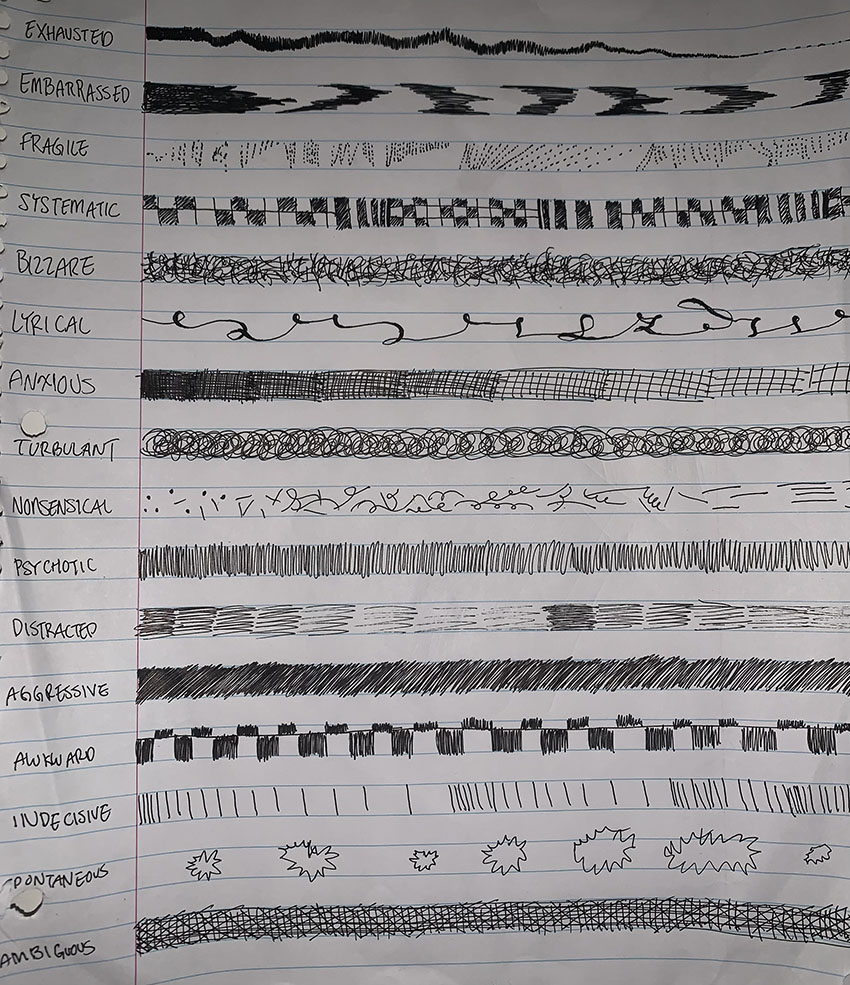 EXHAUSTED
EMBARRASSED
FRAGILE
SYSTEMATIC
BIZZARE
LYRICAL
ANXIOUS
TURBULANT
NONSENSICAL
PSYCHOTIC
DISTRACTED
AGGRESSIVE
AWKWARD
INDECISIVE
SPONTANEOUS
AMBIGUOUS